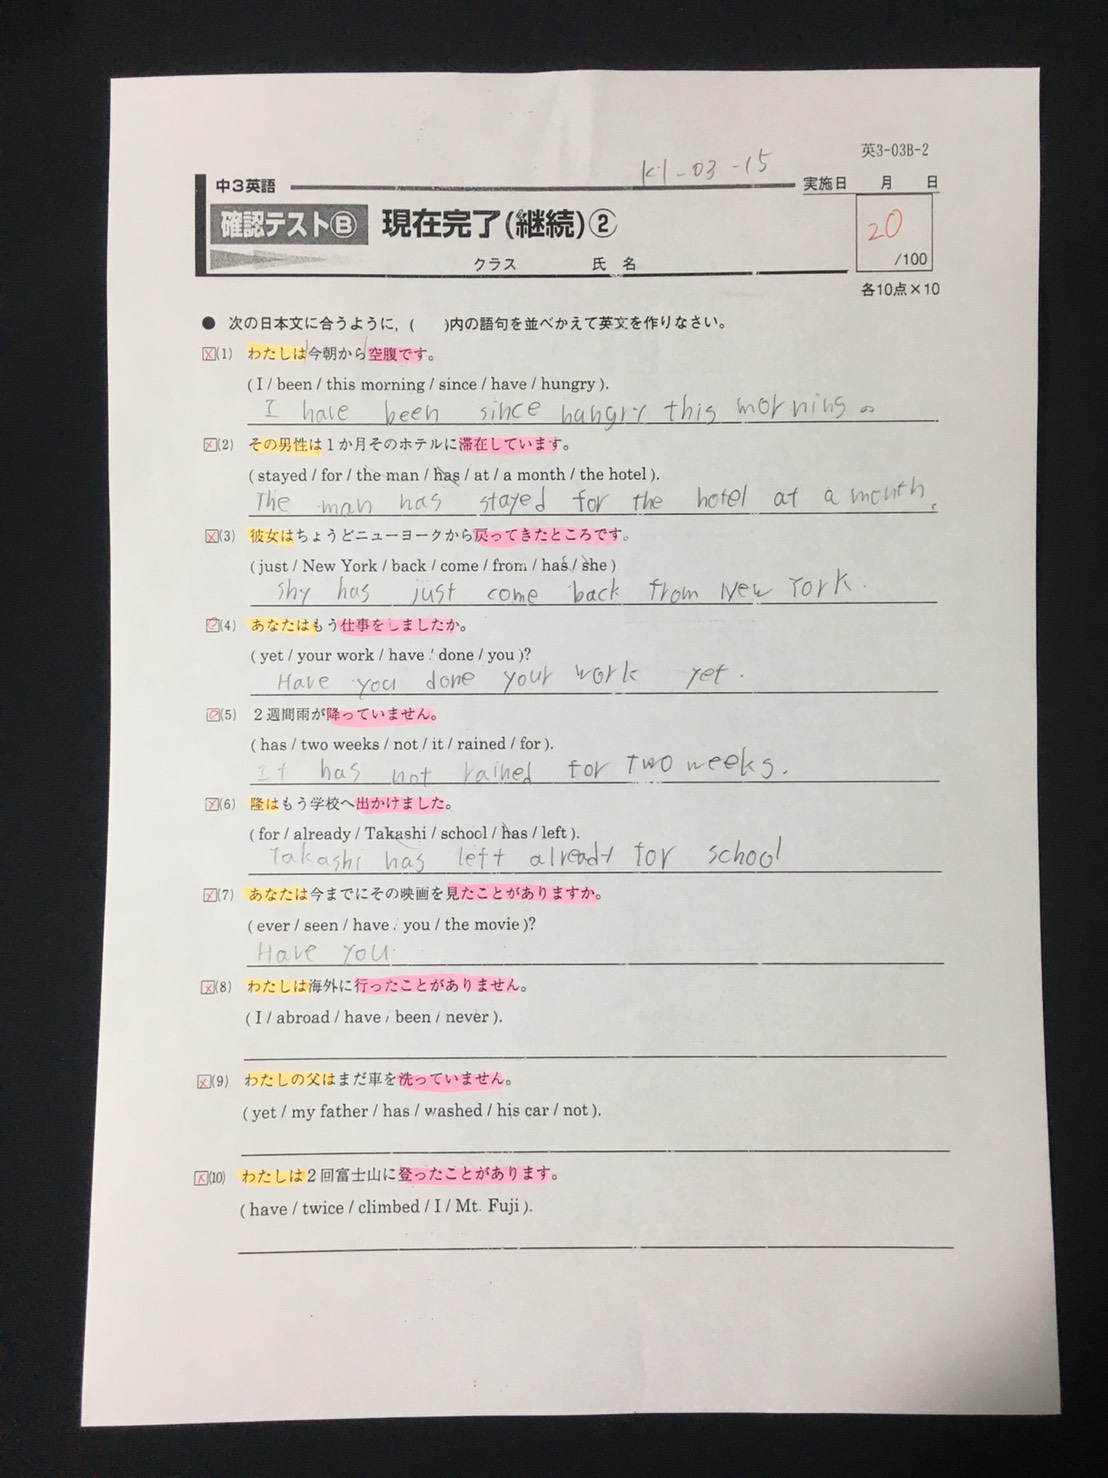 英3-03B-2
K1-03-15
中3英語
実施日 月 日
確認テストⒷ 現在完了(継続)②
20
/100
クラス 氏名
各10点×10
● 次の日本文に合うように, ( )内の語句を並べかえて英文を作りなさい。
(1) わたしは今朝から空腹です。
( I / been / this morning / since / have / hungry ).
I have been since hangry this morning 。
(2) その男性は1か月そのホテルに滞在しています。
( stayed / for / the man / has / at / a month / the hotel ).
The man has stayed for the hotel at a month.
(3) 彼女はちょうどニューヨークから戻ってきたところです。
( just / New York / back / come / from / has / she )
Shy has just come back from New York.
(4) あなたはもう仕事をしましたか。
( yet / your work / have / done / you )?
Have you done your work yet.
(5) 2週間雨が降っていません。
( has / two weeks / not / it / rained / for ).
It has not rained for two weeks.
(6) 隆はもう学校へ出かけました。
( for / already / Takashi / school / has / left ).
Takashi has left already for school
(7) あなたは今までにその映画を見たことがありますか。
( ever / seen / have / you / the movie )?
Have you
(8) わたしは海外に行ったことがありません。
( I / abroad / have / been / never ).
(9) わたしの父はまだ車を洗っていません。
( yet / my father / has / washed / his car / not ).
(10) わたしは2回富士山に登ったことがあります。
( have / twice / climbed / I / Mt. Fuji ).